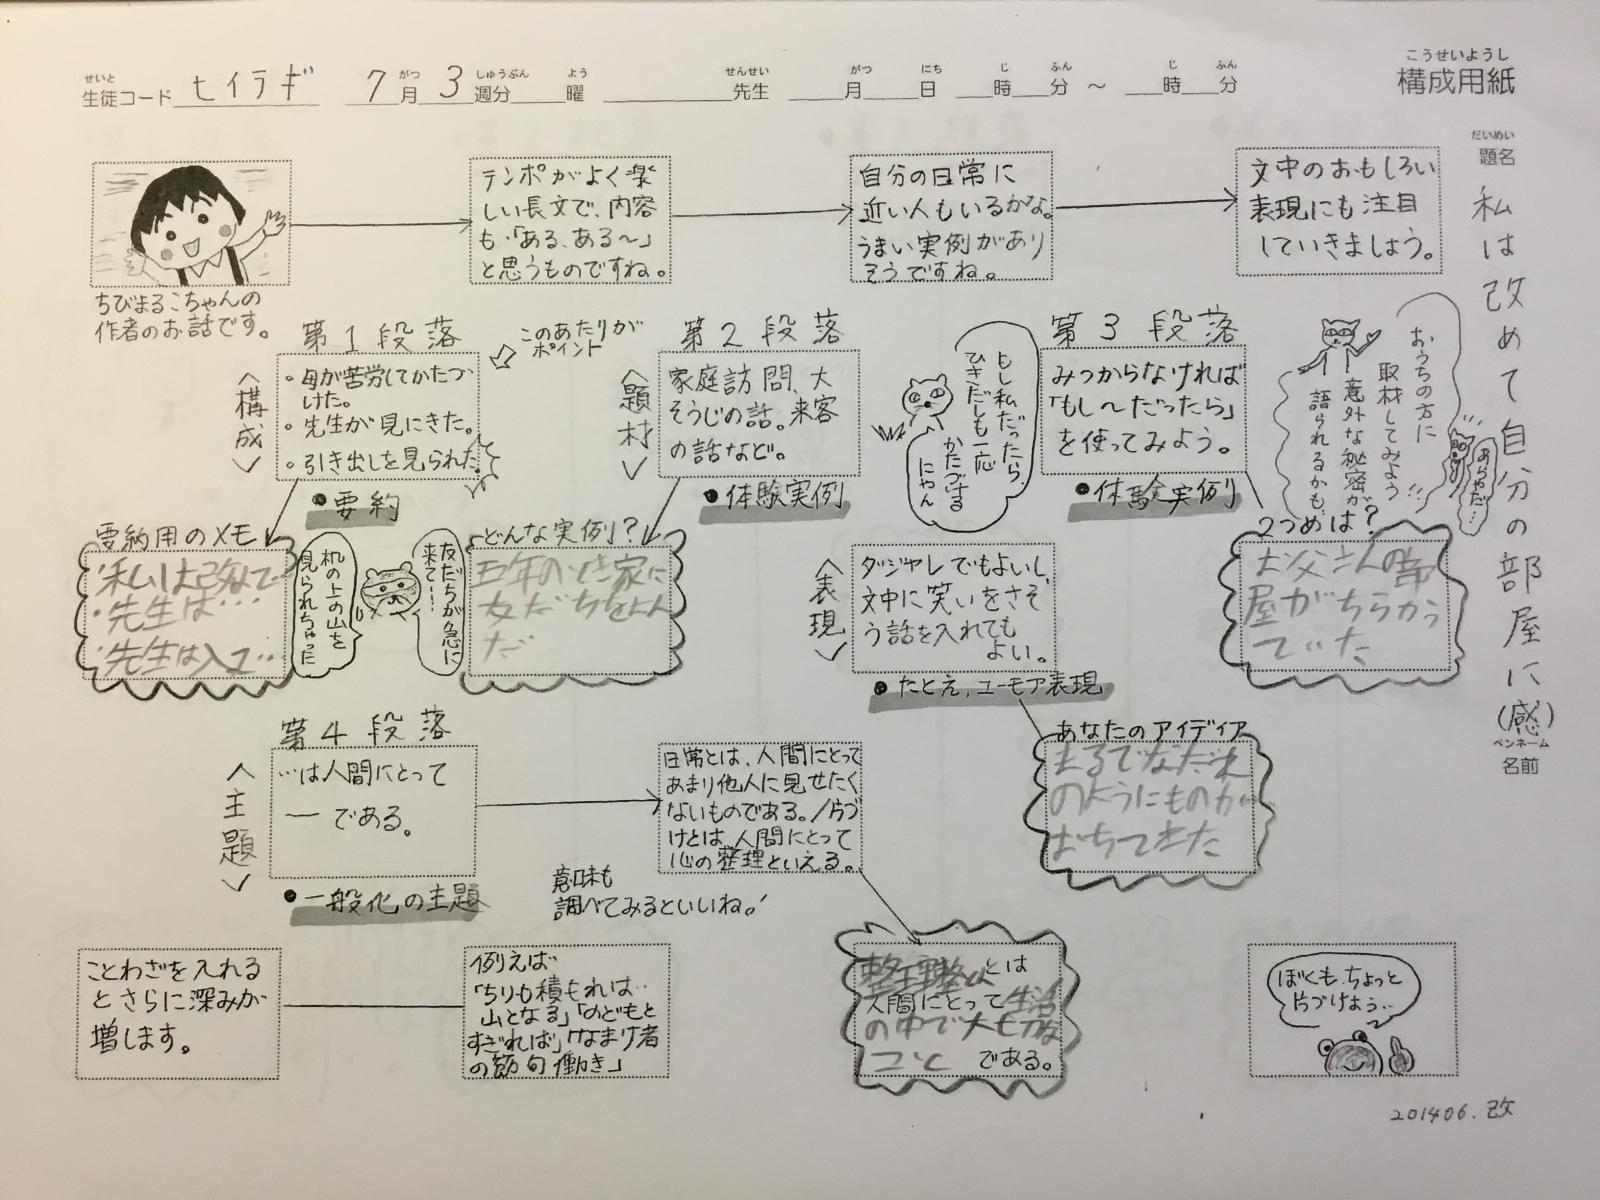 こうせいようし
構成用紙
せいと がつ しゅうぶん よう せんせい がつ にち じ ふん じ ふん
生徒コード セイラギ 7月3週分 曜 先生 月 日 時 分 ～ 時 分
だいめい
題名
私は改めて自分の部屋に(感)
ペンネーム
名前
ちびまるこちゃんの
作者のお話です。
テンポがよく楽
しい長文で、内容
も「ある、ある～」
と思うものですね。
自分の日常に
近い人もいるかな。
うまい実例があり
そうですね。
文中のおもしろい
表現にも注目
していきましょう。
第1段落
このあたりが
ポイント
<構成>
・母が苦労してかたづ
けた。
・先生が見にきた。
・引き出しを見られた
●要約
要約用のメモ
・私は改めて
・先生は…
・先生は入って…
机の上の山を
見られちゃった
第2段落
<題材>
家庭訪問、大
そうじの話。来客
の話など。
●体験実例
どんな実例?
五年のとき家に
友だちをよん
だ
友だちが急に
来て…
第3段落
もし私だったら、
ひきだしも一応
かたづける
にゃん
みつからなければ
「もし～だったら」
を使ってみよう。
●体験実例
おうちの方に
取材してみよう
意外な秘密が
語られるかも
あらやだ…
2つめは?
お父さんの部
屋がちらかっ
ていた
<表現>
ダジャレでもよいし、
文中に笑いをさそ
う話を入れても
よい。
●たとえ、ユーモア表現
あなたのアイディア
まるでなだれ
のようにものが
おちてきた
第4段落
<主題>
…は人間にとって
―である。
●一般化の主題
日常とは、人間にとって
あまり他人に見せたく
ないものである。/片づ
けとは、人間にとって
心の整理といえる。
意味も
調べてみるといいね。!
ことわざを入れる
とさらに深みが
増します。
例えば
「ちりも積もれば…
山となる」「のどもと
すぎれば」「なまけ者
の節句働き」
整理整とんとは
人間にとって生活
の中で大切な
こと である。
ぼくも、ちょっと
片づけよう…
201406.改